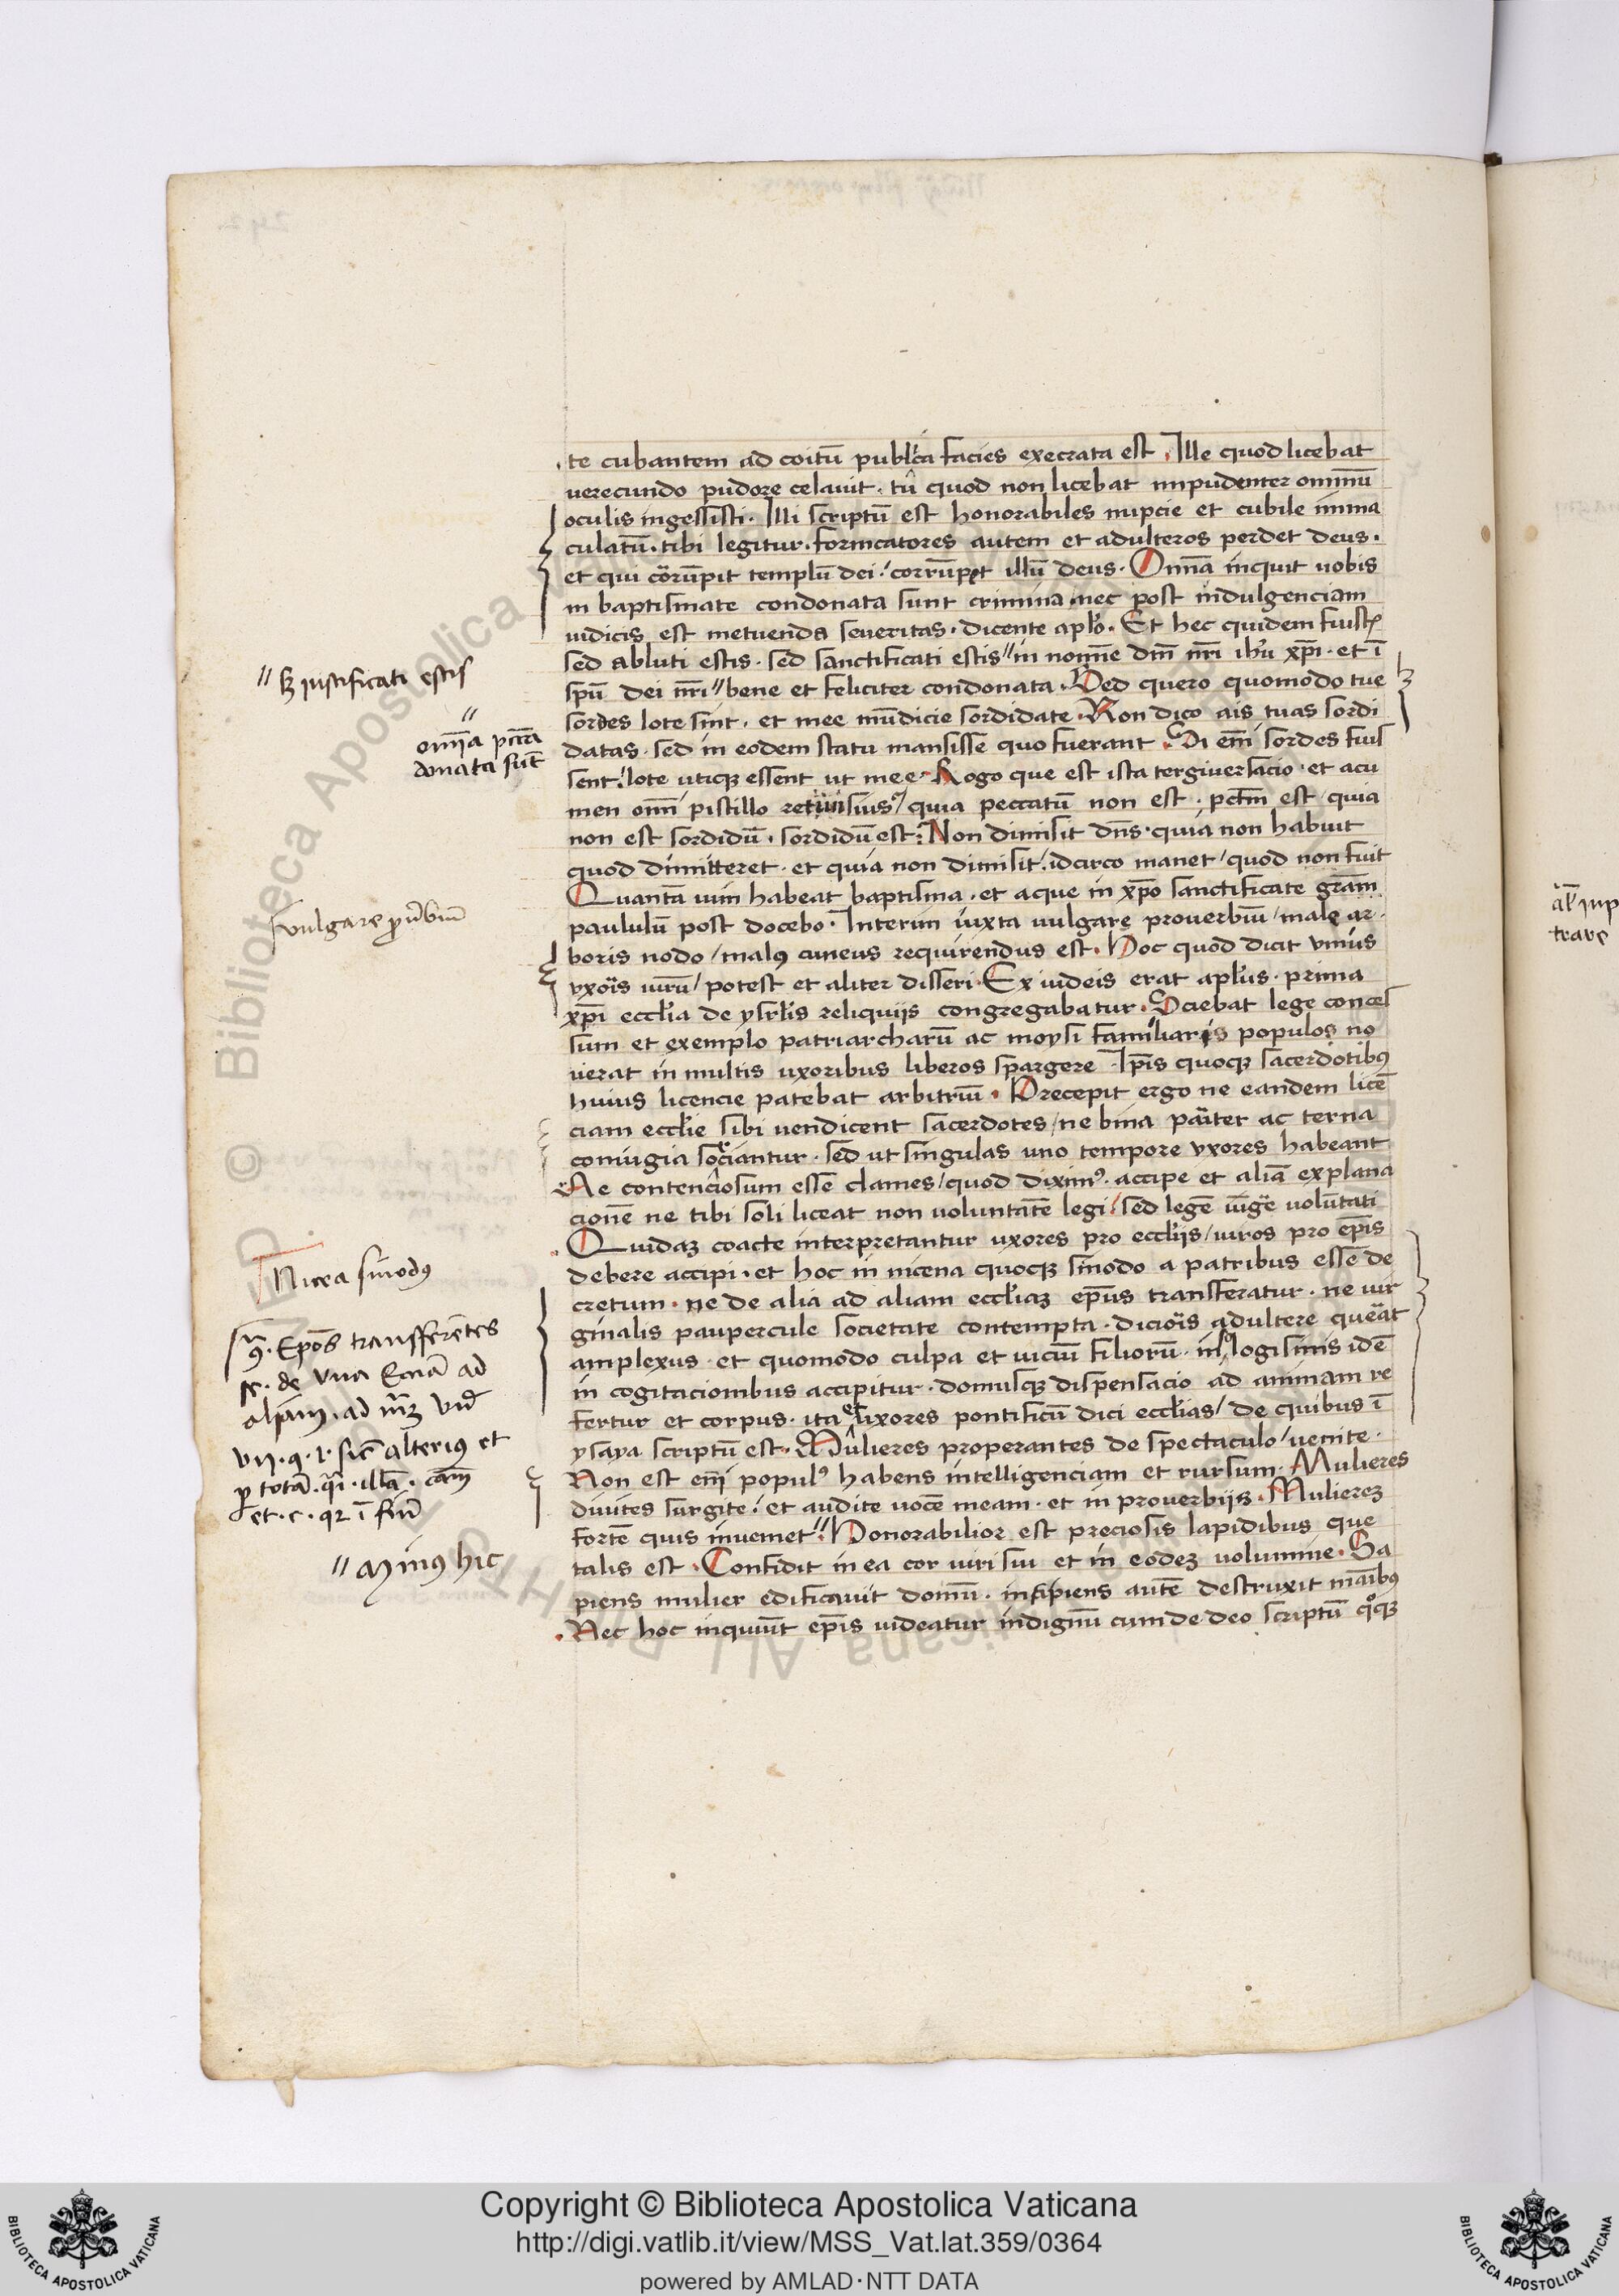 te cubantem ad coitū publica facies execrata est. Ille quod licebat
uerecundo pudore celauit. tu quod non licebat impudenter omniū
oculis ingessisti. Illi scriptū est honorabiles nupcie et cubile imma
culatū. tibi legitur. fornicatores autem et adulteros perdet deus.
et qui corrūpit templū dei / corrūpet illū deus. Omnia inquit uobis
in baptismate condonata sunt crimina. nec post indulgenciam
iudicis est metuenda seueritas. dicente aplo. Et hec quidem fuistis
sed abluti estis. sed sanctificati estis // in nomine dm̄ nr̄i ihū xp̄i. et ī
spū dei nr̄i // bene et feliciter condonata. Sed quero quomodo tue
sordes lote sint. et mee mūdicie sordidate. Non dico ais tuas sordi
datas. sed in eodem statu mansisse quo fuerant. Si em̄ sordes fuis
sent / lote utiqꝫ essent ut mee. Rogo que est ista tergiuersacio. et acu
men omni pistillo retunsius / quia peccatū non est. pctm̄ est / quia
non est sordidū. sordidū est: Non dimisit dns. quia non habuit
quod dimitteret. et quia non dimisit / idcirco manet / quod non fuit
Quantā uim habeat baptisma. et aque in xpo sanctificate grām
paululū post docebo. Interim iuxta uulgare prouerbiū / male ar
boris nodo / malus cuneus requirendus est. Hoc quod dicit unius
vxoris uirū / potest et aliter disseri. Ex iudeis erat aplus. prima
xp̄i ecclia de ysrlis reliquijs congregabatur. Sciebat lege conces
sum et exemplo patriarcharū ac moysi familiaris populos no
uerat in multis uxoribus liberos spargere. Ipsis quoqꝫ sacerdotibus
huius licencie patebat arbitriū. Precepit ergo ne eandem licē
ciam ecclie sibi uendicent sacerdotes / ne bina pariter ac terna
coniugia sociantur. sed ut singulas uno tempore vxores habeant
Ne contenciosum esse clames / quod diximꝰ. accipe et aliā explana
cionē ne tibi soli liceat non voluntatē legi / sed legē iūgere volūtati
Quidaꝫ coacte interpretantur uxores pro ecclijs / uiros pro epis
debere accipi. et hoc in nicena quoqꝫ sinodo a patribus esse de
cretum. ne de alia ad aliam eccliaꝫ epus transferatur. ne uir
ginalis paupercule societate contempta. dicioris adultere querat
amplexus. et quomodo culpa et uiciū filiorū. in logismis idē
in cogitacionibus accipitur. domusqꝫ dispensacio ad animam re
fertur et corpus. ita et uxores pontificū dici ecclias / de quibus ī
ysaya scriptū est. Mulieres properantes de spectaculo / uenite.
Non est em̄ populꝰ habens intelligenciam et rursum. Mulieres
diuites surgite / et audite uocē meam. et in prouerbijs. Muliereꝫ
fortē quis inueniet // Honorabilior est preciosis lapidibus que
talis est. Confidit in ea cor uiri sui et in eodeꝫ uolumine. Sa
piens mulier edificauit domū. insipiens autē destruxit manibꝰ
Nec hoc inquiunt epis uideatur indignū cum de deo scriptū qoqꝫ
// sꝫ iustificati estis
//
omīa pctā
donata sūt
vulgare puerbiū
Nicea sinodꝰ
Epos transfferētes
se. de vna Eccīa ad
aliam. ad
vij. q. 1. sicut alterius et
p totā. illa. cam
et. c. ī fin
// Minus hic
al
trare
Copyright © Biblioteca Apostolica Vaticana
http://digi.vatlib.it/view/MSS_Vat.lat.359/0364
powered by AMLAD·NTT DATA
BIBLIOTECA APOSTOLICA VATICANA
BIBLIOTECA APOSTOLICA VATICANA